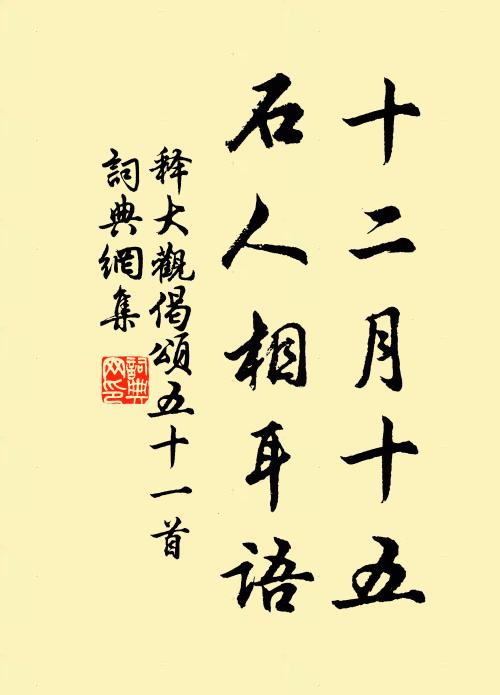 十二月十五
石人相耳語
释大觀偈頌五十一首
詞典網集
詞典网印